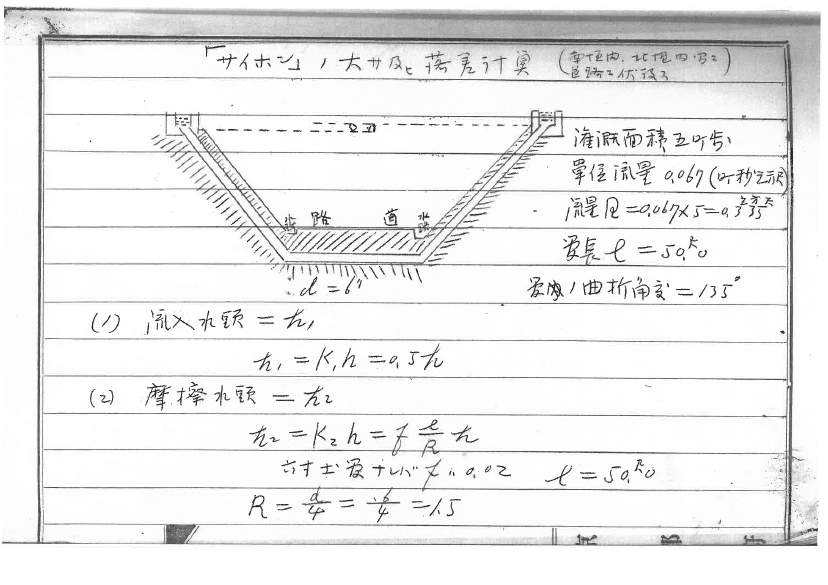 「サイホン」ノ大サ及落差計算
水路 道路 水路
d = 6"
灌漑面積五町歩
單位流量 0.067 (町秒立方尺)
流量 Q = 0.067×5 = 0.335
長 l = 50.尺0
曲折角度 = 135°
(1) 流入水頭 = h₁
h₁ = K₁h = 0.5h
(2) 摩擦水頭 = h₂
h₂ = K₂h = f l/R h
六寸土管ナレバ f = 0.02 l = 50.尺0
R = d/4 = .6/4 = 1.5
京都府